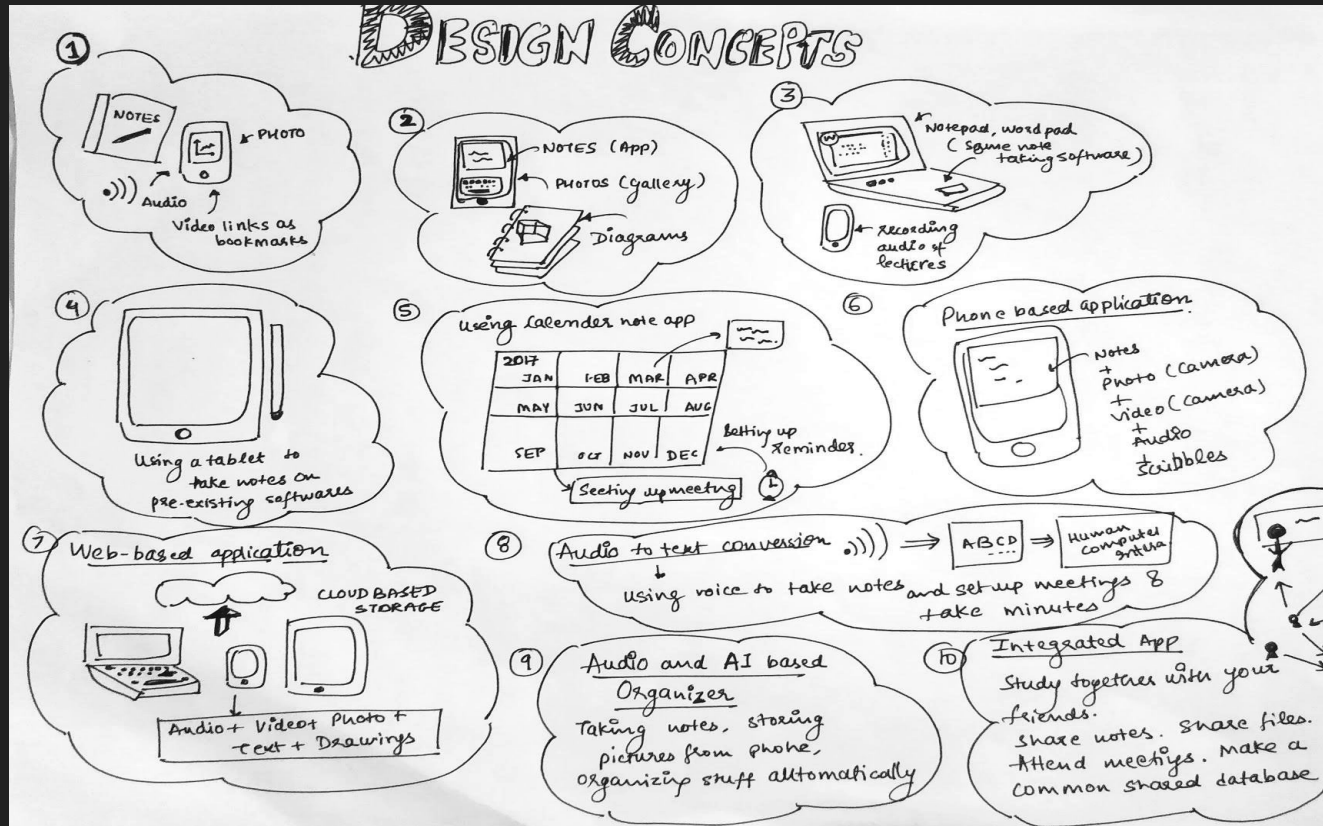 DESIGN CONCEPTS
1
NOTES
PHOTO
Audio
Video links as
bookmarks
2
NOTES (App)
PHOTOS (gallery)
Diagrams
3
W
Notepad, wordpad
(Some note
taking software)
recording
audio of
lectures
4
Using a tablet to
take notes on
pre-existing softwares
5
using Calender note app
2017
JAN FEB MAR APR
MAY JUN JUL AUG
SEP OCT NOV DEC
Setting up
reminder.
Seeting up meeting
6
Phone based application
Notes
+
Photo (Camera)
+
video (camera)
+
Audio
+
Scribbles
7
Web-based application
CLOUD BASED
STORAGE
Audio + Video + Photo +
text + Drawings
8
Audio to text conversion
ABCD
Human
computer
using voice to take notes and set up meetings &
take minutes
9
Audio and AI based
Organizer
Taking notes, storing
pictures from phone,
organizing stuff automatically
10
Integrated App
Study together with your
friends.
Share notes. Share files.
Attend meetings. Make a
common shared database